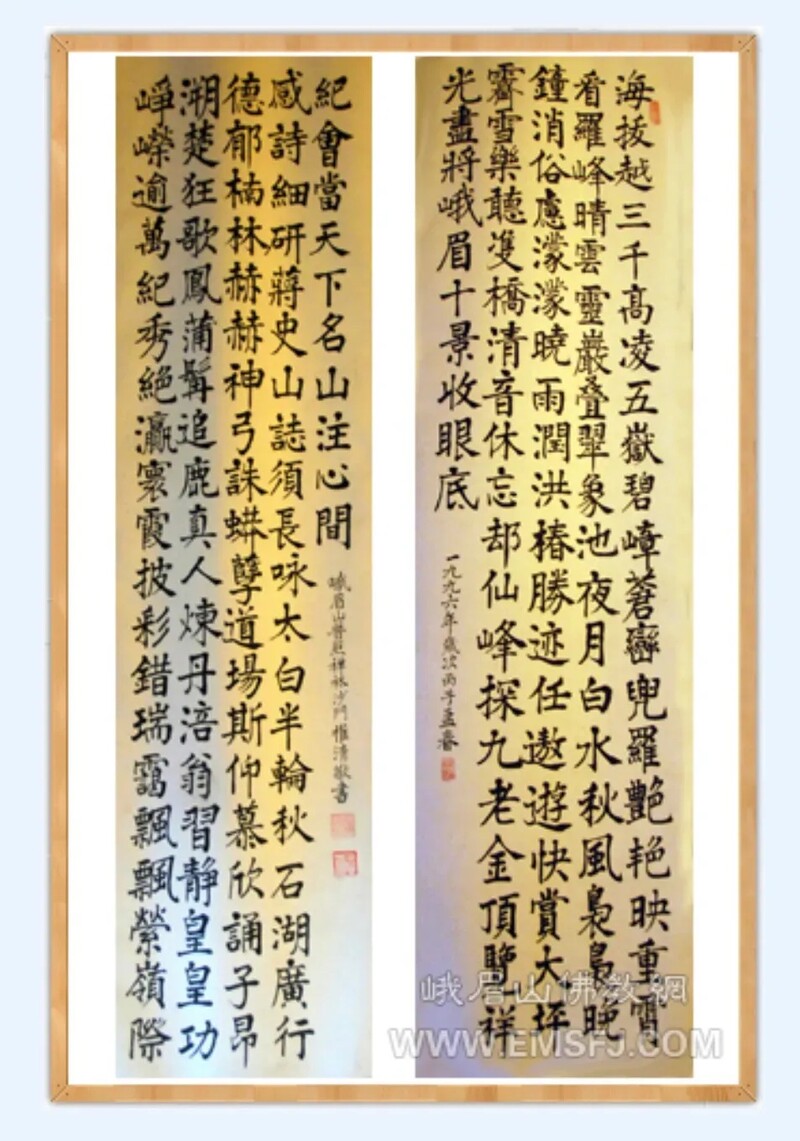 海拔越三千高凌五嶽碧嶂蒼巒兜羅艷艳映重霄
看羅峰晴雲靈巖叠翠象池夜月白水秋風裊裊晚
鐘消俗慮濛濛曉雨潤洪椿勝迹任遨遊快賞大坪
霽雪樂聽雙橋清音休忘却仙峰探九老金頂覽祥
光盡將峨眉十景收眼底
一九九六年歲次丙子孟春
崢嶸逾萬紀秀絕瀛寰霞披彩錯瑞靄飄飄縈嶺際
溯楚狂歌鳳蒲髯追鹿真人煉丹涪翁習靜皇皇功
德郁楠林赫赫神弓誅蟒孽道場斯仰慕欣誦子昂
感詩細研蔣史山誌須長咏太白半輪秋石湖廣行
紀會當天下名山注心間
峨眉山普照禪林沙門惟清敬書
峨眉山佛教網
WWW.EMSFJ.COM